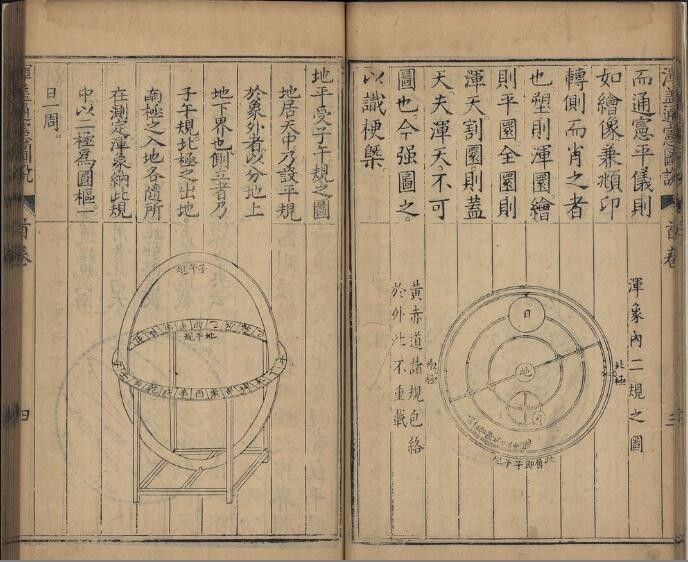 渾蓋通憲圖說
首卷
三
而通憲平儀則
如繪像兼頫印
轉側而肖之者
也塑則渾圜繪
則平圜全圜則
渾天割圜則蓋
天夫渾天不可
圖也今强圖之
以識梗槩
渾象內二規之圖
北極
日
地
月
南極
即子午規
黃赤道諸規包絡
於外此不重載
地平受子午規之圖
地居天中乃設平規
於象外者以分地上
地下界也側立者乃
子午規北極之出地
南極之入地各隨所
在測定渾象納此規
中以二極爲圜樞一
日一周。
子午規
地平規
渾蓋通憲圖說
首卷
四